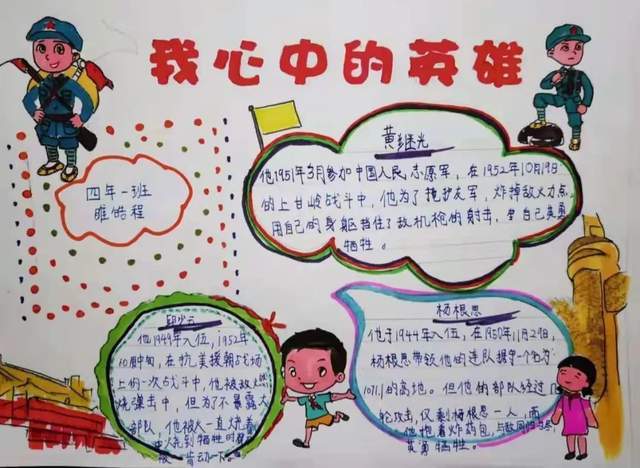 我心中的英雄
四年一班
睢皓程
黄继光
他1951年3月参加中国人民志愿军,在1952年10月19日
的上甘岭战斗中,他为了掩护友军,炸掉敌火力点,
用自己的身躯挡住了敌机枪的射击,自己英勇
牺牲。
邱少云
他1949年入伍,1952年
10月中旬,在抗美援朝战场
上的一次战斗中,他被敌
烧弹击中,但为了不暴露大
部队,他被火一直烧着
火烧到牺牲时
动一下。
杨根思
他于1944年入伍,在1950年11月29日,
杨根思带领他的连队据守一个名为
1071.1的高地。但他的部队经过
轮攻击,仅剩杨根思一人,而
他抱着炸药包,与敌同归于尽,
英勇牺牲。